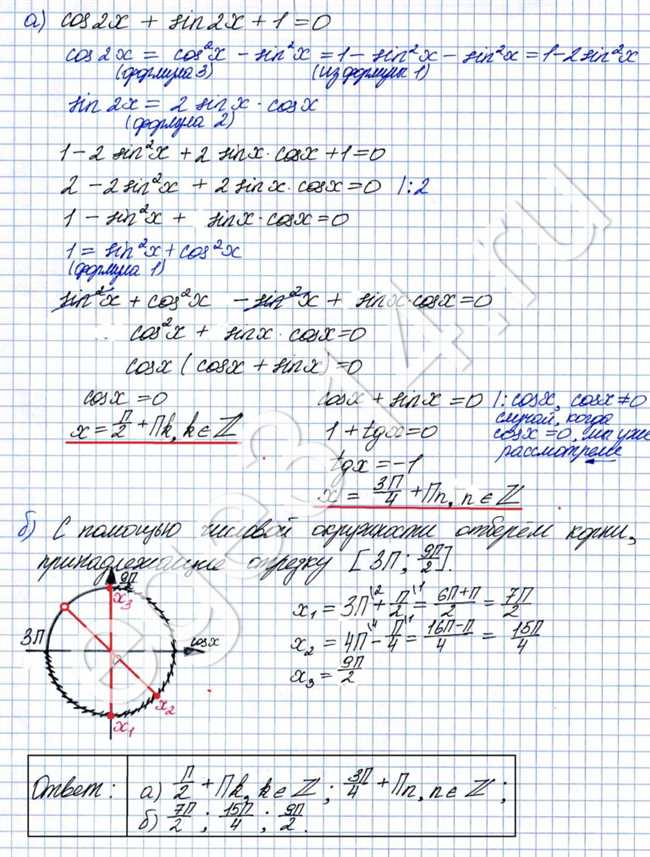 а) cos2x + sin2x + 1 = 0
cos2x = cos²x − sin²x = 1 − sin²x − sin²x = 1 − 2sin²x
(формула 3) (из формулы 1)
sin2x = 2 sinx · cosx
(формула 2)
1 − 2 sin²x + 2 sinx · cosx + 1 = 0
2 − 2 sin²x + 2 sinx · cosx = 0 |:2
1 − sin²x + sinx · cosx = 0
1 = sin²x + cos²x
(формула 1)
sin²x + cos²x − sin²x + sinx · cosx = 0
cos²x + sinx · cosx = 0
cosx (cosx + sinx) = 0
cosx = 0
x = П/2 + Пk, k ∈ ℤ
cosx + sinx = 0 |: cosx, cosx ≠ 0
случай, когда
cosx = 0, мы уже
рассмотрели
1 + tgx = 0
tgx = −1
x = 3П/4 + Пn, n ∈ ℤ
б) С помощью числовой окружности отберем корни,
принадлежащие отрезку [3П; 9П/2].
9П/2
x₃
3П
cosx
x₂
x₁
x₁ = 3П\2 + П/2\1 = 6П+П/2 = 7П/2
x₂ = 4П\4 − П/4\1 = 16П−П/4 = 15П/4
x₃ = 9П/2
Ответ:
а) П/2 + Пk, k ∈ ℤ; 3П/4 + Пn, n ∈ ℤ;
б) 7П/2; 15П/4; 9П/2.